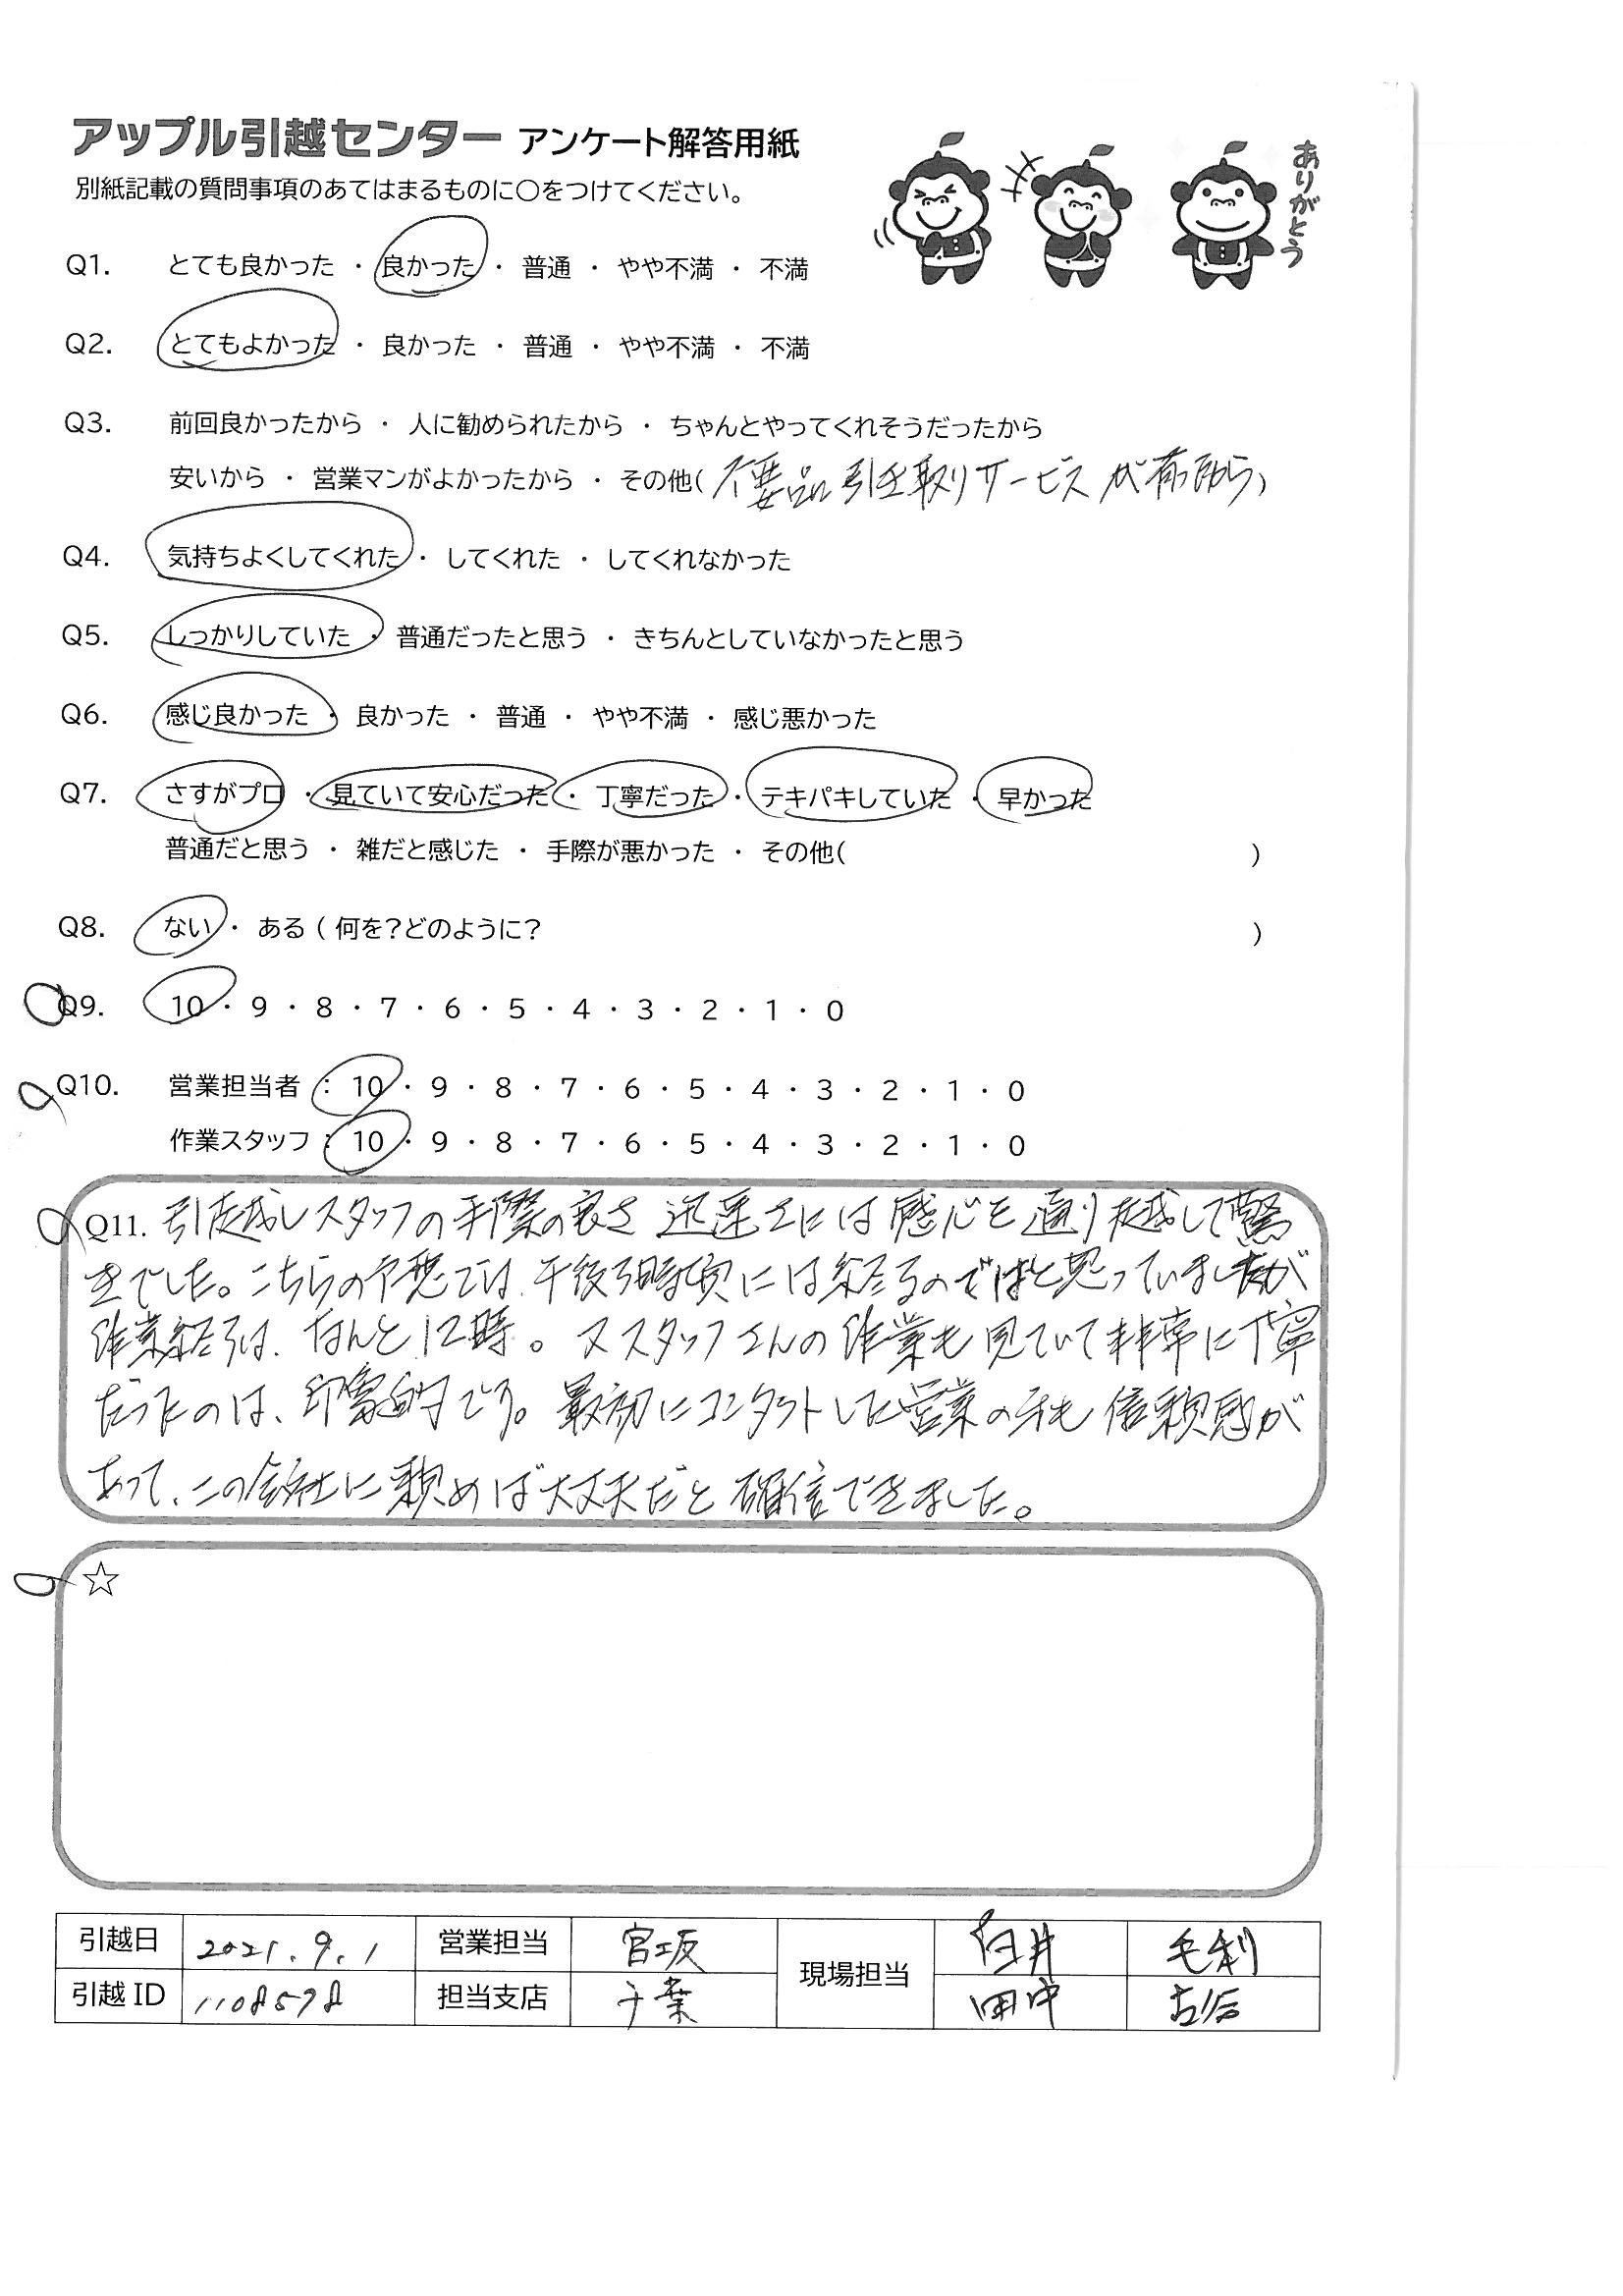 アップル引越センター アンケート解答用紙
別紙記載の質問事項のあてはまるものに○をつけてください。
ありがとう
Q1. とても良かった ・ 良かった ・ 普通 ・ やや不満 ・ 不満
Q2. とてもよかった ・ 良かった ・ 普通 ・ やや不満 ・ 不満
Q3. 前回良かったから ・ 人に勧められたから ・ ちゃんとやってくれそうだったから
安いから ・ 営業マンがよかったから ・ その他( 不要品引き取りサービスが有ったから )
Q4. 気持ちよくしてくれた ・ してくれた ・ してくれなかった
Q5. しっかりしていた ・ 普通だったと思う ・ きちんとしていなかったと思う
Q6. 感じ良かった ・ 良かった ・ 普通 ・ やや不満 ・ 感じ悪かった
Q7. さすがプロ ・ 見ていて安心だった ・ 丁寧だった ・ テキパキしていた ・ 早かった
普通だと思う ・ 雑だと感じた ・ 手際が悪かった ・ その他( )
Q8. ない ・ ある ( 何を?どのように? )
Q9. 10 ・ 9 ・ 8 ・ 7 ・ 6 ・ 5 ・ 4 ・ 3 ・ 2 ・ 1 ・ 0
Q10. 営業担当者 : 10 ・ 9 ・ 8 ・ 7 ・ 6 ・ 5 ・ 4 ・ 3 ・ 2 ・ 1 ・ 0
作業スタッフ : 10 ・ 9 ・ 8 ・ 7 ・ 6 ・ 5 ・ 4 ・ 3 ・ 2 ・ 1 ・ 0
Q11. 引越しスタッフの手際の良さ 迅速さには感心を通り越して驚
きでした。こちらの予想では、午後3時頃には終るのではと思っていましたが
作業終了は、なんと12時。又スタッフさんの作業も見ていて非常に丁寧
だったのは、印象的です。最初にコンタクトした営業の方も信頼感が
あって、この会社に頼めば大丈夫だと確信できました。
☆
引越日 2021.9.1 営業担当 宮坂 現場担当 白井 毛利
引越 ID 1108578 担当支店 千葉 田中 古谷